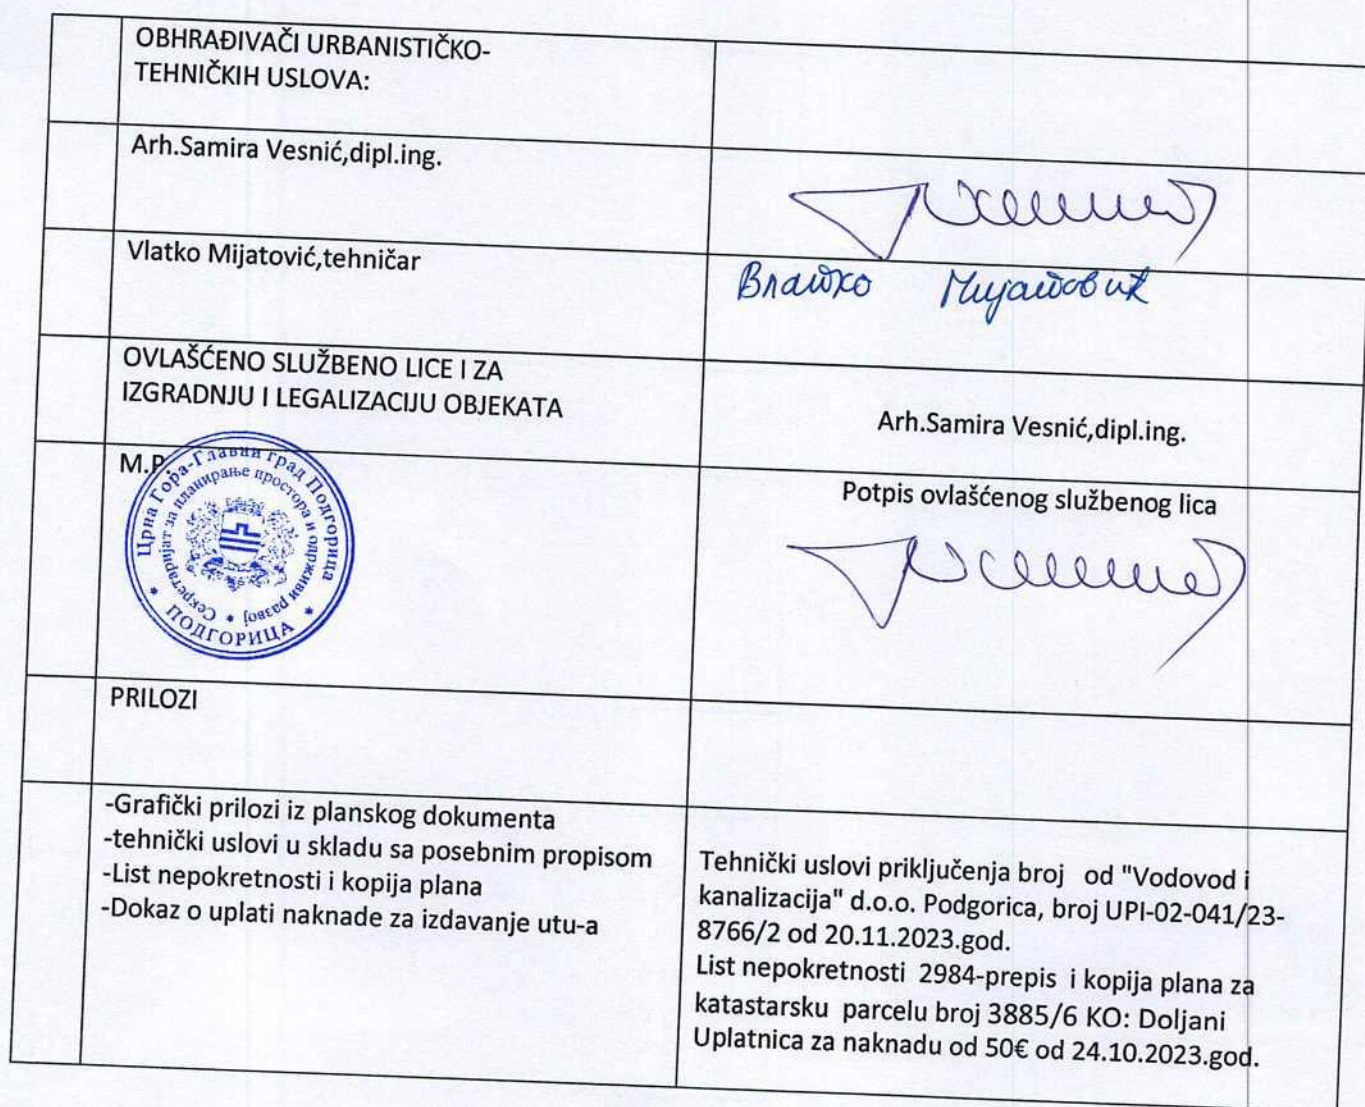 OBHRAĐIVAČI URBANISTIČKO-
TEHNIČKIH USLOVA:
Arh.Samira Vesnić,dipl.ing.
Vlatko Mijatović,tehničar
Влатко Мијатовић
OVLAŠĆENO SLUŽBENO LICE I ZA
IZGRADNJU I LEGALIZACIJU OBJEKATA
Arh.Samira Vesnić,dipl.ing.
M.P.
Црна Гора-Главни град Подгорица
Секретаријат за планирање простора и одрживи развој
ПОДГОРИЦА
Potpis ovlašćenog službenog lica
PRILOZI
-Grafički prilozi iz planskog dokumenta
-tehnički uslovi u skladu sa posebnim propisom
-List nepokretnosti i kopija plana
-Dokaz o uplati naknade za izdavanje utu-a
Tehnički uslovi priključenja broj od "Vodovod i
kanalizacija" d.o.o. Podgorica, broj UPI-02-041/23-
8766/2 od 20.11.2023.god.
List nepokretnosti 2984-prepis i kopija plana za
katastarsku parcelu broj 3885/6 KO: Doljani
Uplatnica za naknadu od 50€ od 24.10.2023.god.